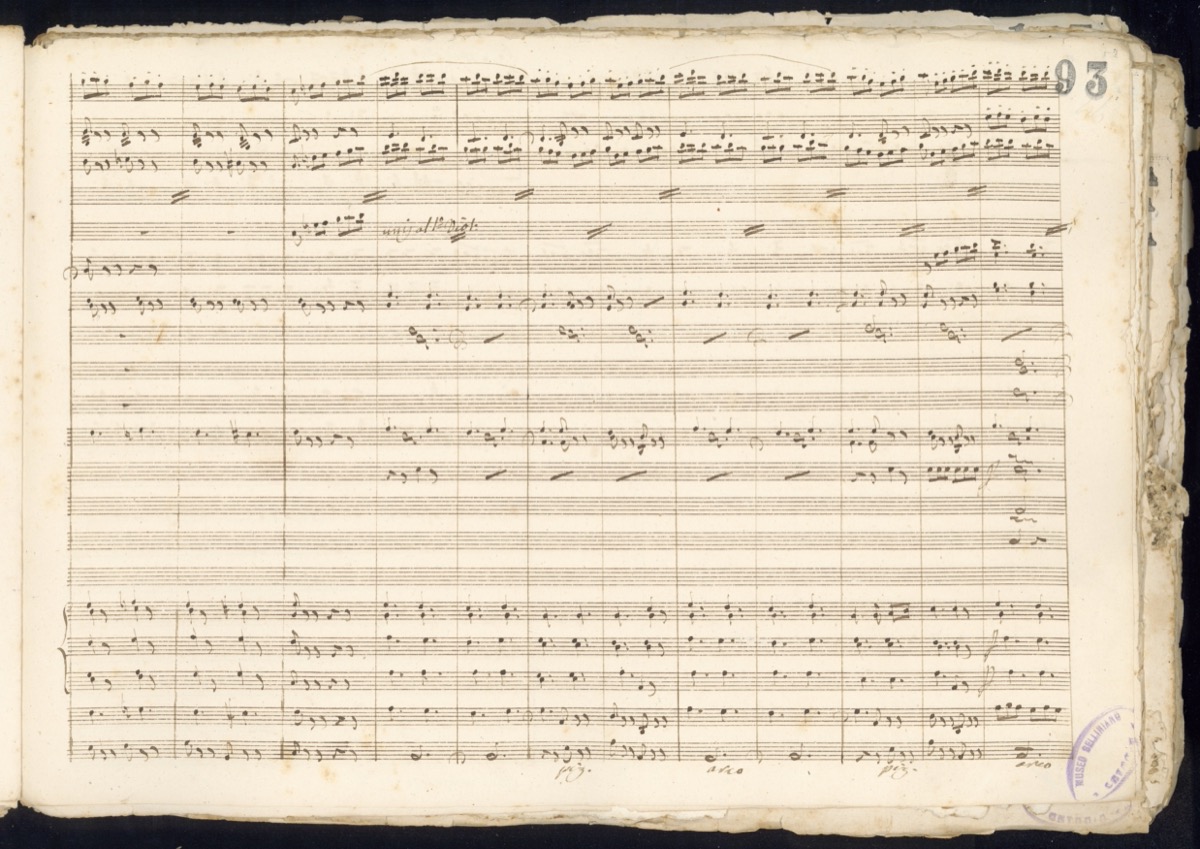 93
unis al 1º Viol:
piz. arco piz. arco
MUSEO BELLINIANO
CATANIA